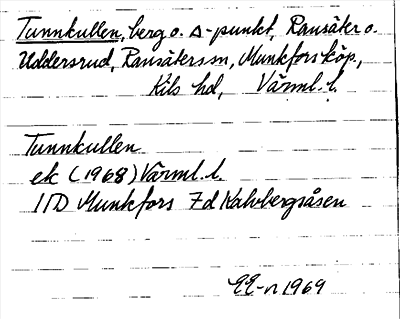 Tunnkullen, berg o. ∆-punkt, Ransäter o.
Uddersrud, Ransäters sn, Munkfors köp.,
Kils hd, Värml. l.
Tunnkullen
ek (1968) Värml. l.
11D Munkfors 7d Kalvbergsåsen
EE-n 1969